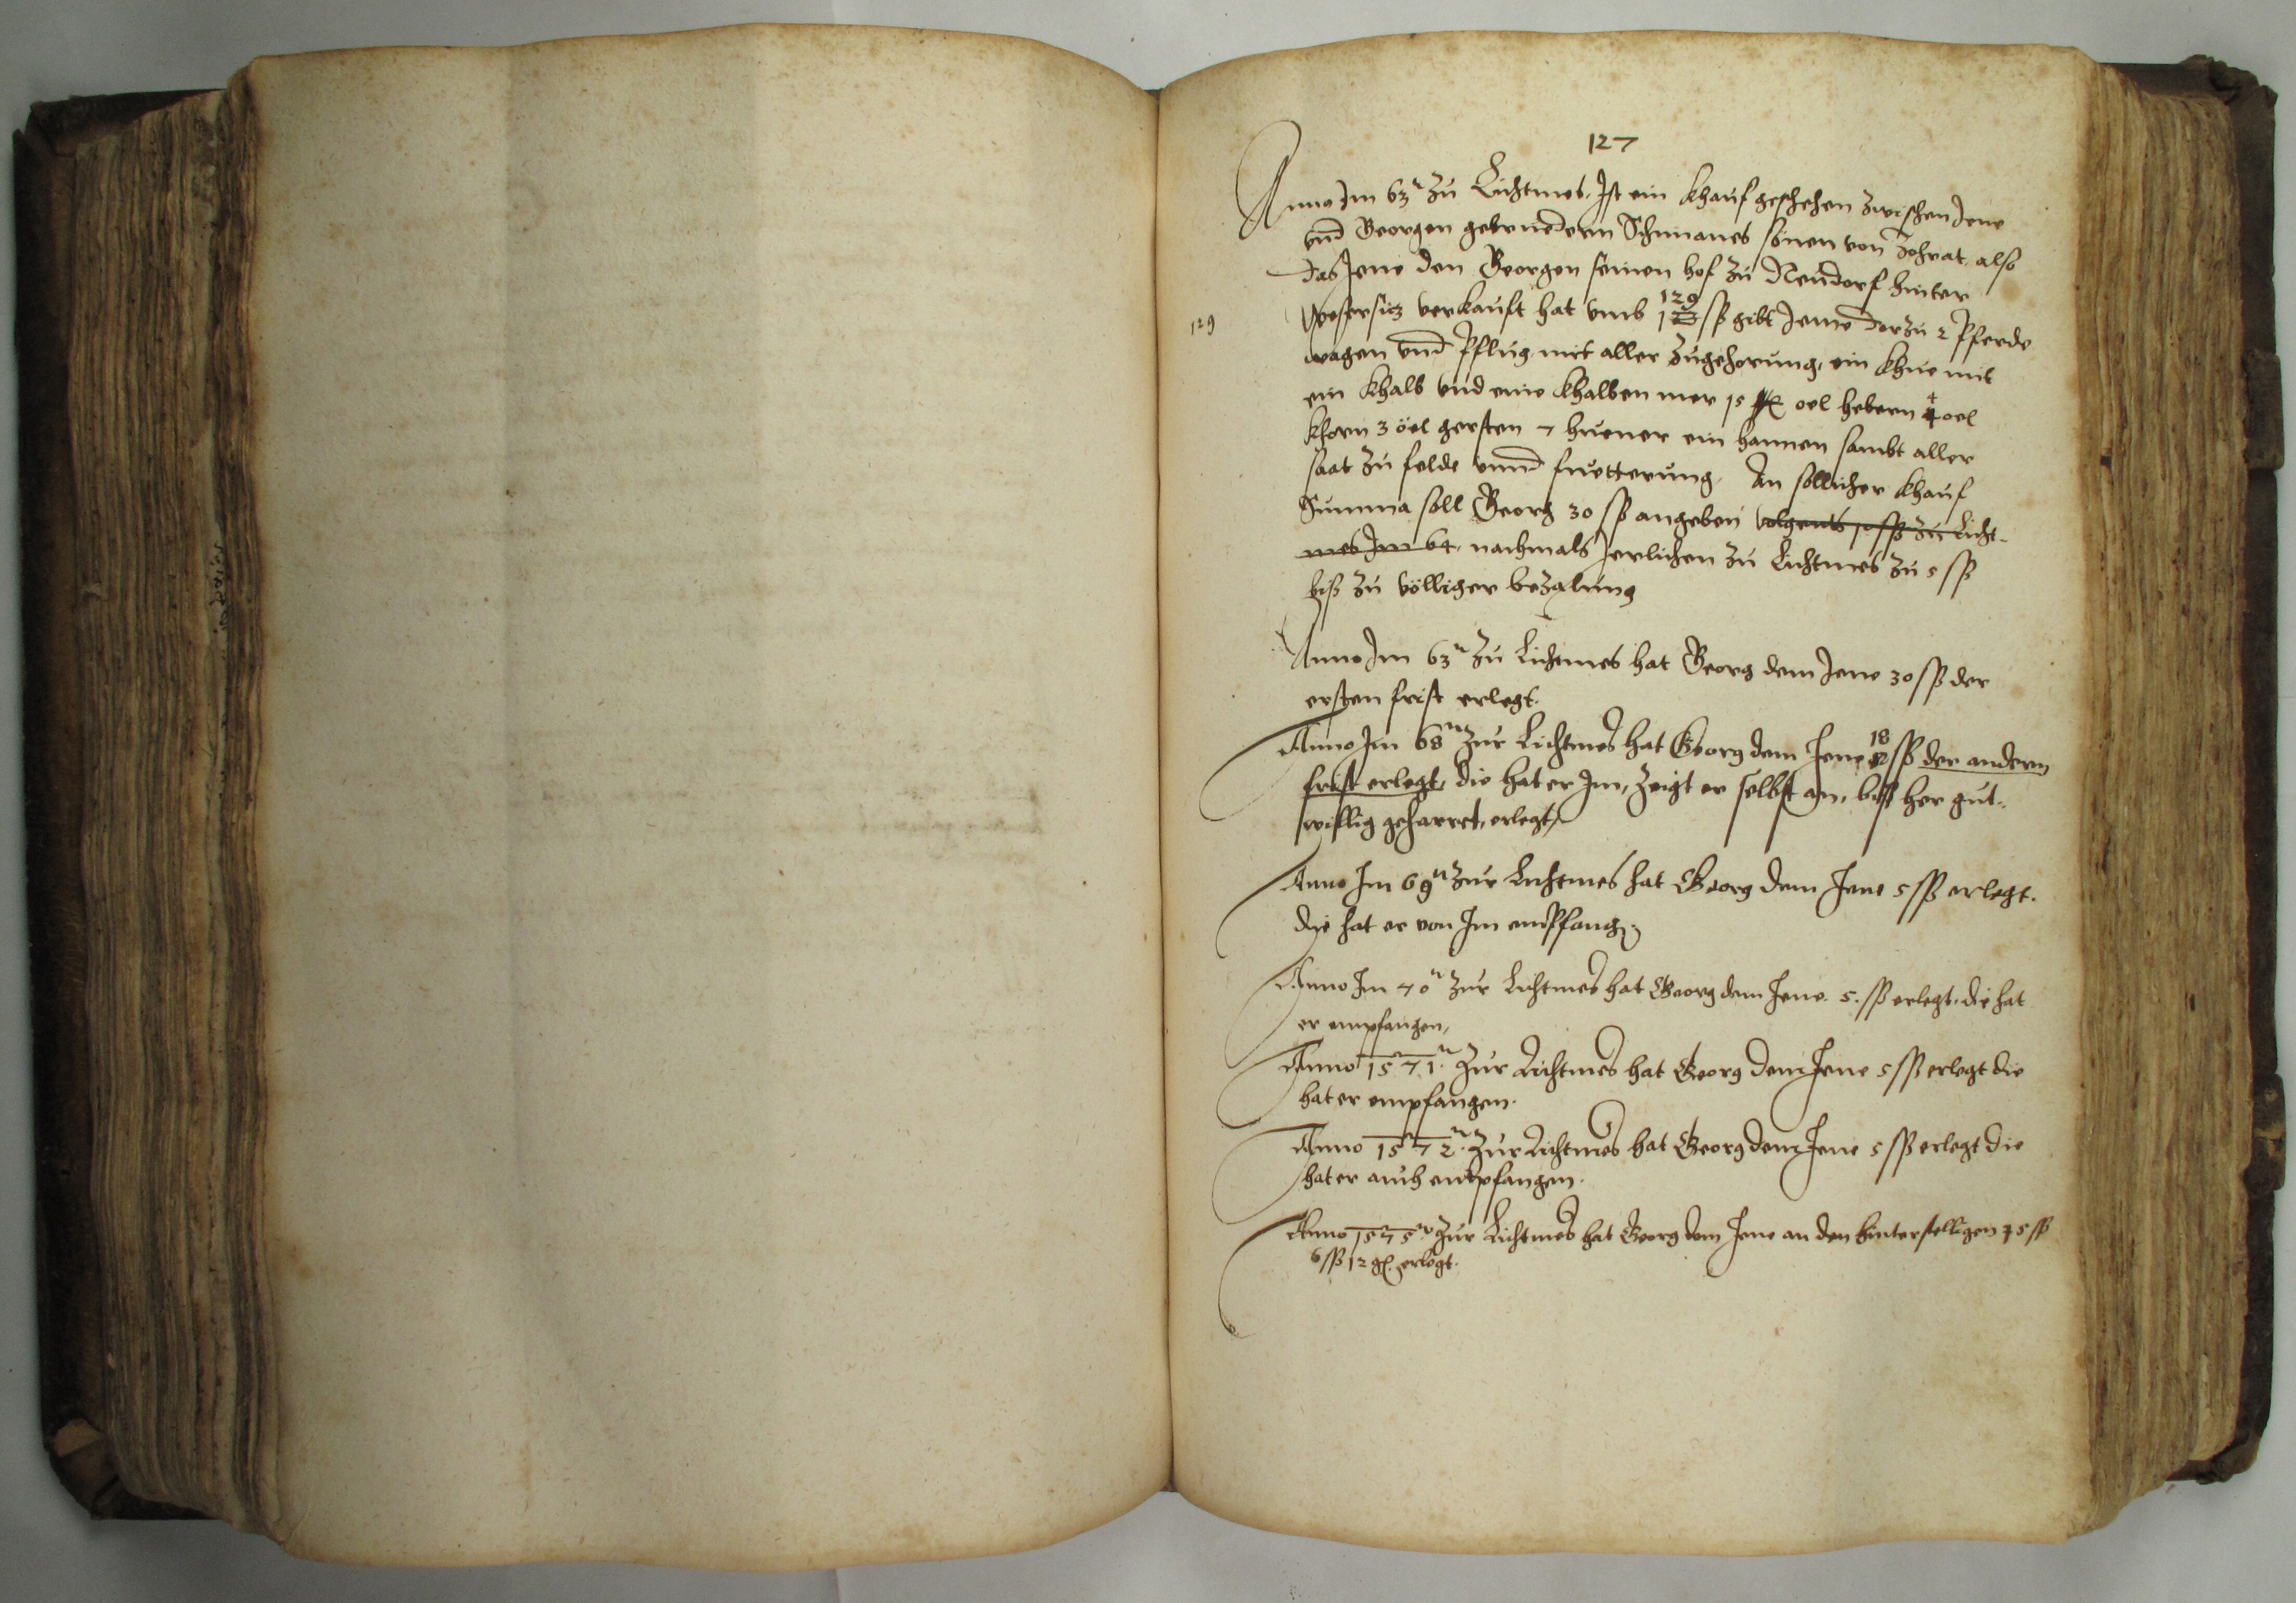 127
Anno Im 63ⁿ zu Lichtmes, Ist ein khauf geschehen zwischen Jene
vnd Georgen gebruedern Schimanes sönen von also
das Jene den Georgen seinen hof zu Neudorf hinter
verkauft hat vmb 129 ßß gibt Jene darzu 2 Pferde
129
wagen vnd Pflug mit aller zugehorung, ein khue mit
ein khalb vnd eine khalben mer 15 oel hebern 4 oel
khorn 3 öel gersten 7 huener ein hannen sambt aller
saat zu felde vnnd fuetterung. An sollicher khauf
Summa soll Georg 30 ßß angeben volgents 10 ßß zu Licht-
mes Im 64, nachmals Jerlichen zu Lichtmes zu 5 ßß
biß zu völliger bezalung
Anno Im 63ⁿ zu Lichtmes hat Georg dem Jene 30 ßß der
ersten frist erlegt.
Anno Im 68ⁿ zur Lichtmes hat Georg dem Jene 18 ßß der andern
frist erlegt, die hat er Im, zeigt er selbst an, biß her gut-
willig geharret, erlegt
Anno Im 69ⁿ zur Lichtmes hat Georg dem Jene 5 ßß erlegt.
die hat er von Im empfangen
Anno Im 70ⁿ zur Lichtmes hat Georg dem Jene. 5. ßß erlegt. die hat
er empfangen,
Anno 1571ⁿ. zur Lichtmes hat Georg dem Jene 5 ßß erlegt die
hat er empfangen.
Anno 1572ⁿ. zur Lichtmes hat Georg dem Jene 5 ßß erlegt die
hat er auch entpfangen.
Anno 1575ⁿ. zur Lichtmes hat Georg dem Jene an den hinterstelligen ßß
6 ßß 12 gr. erlegt.